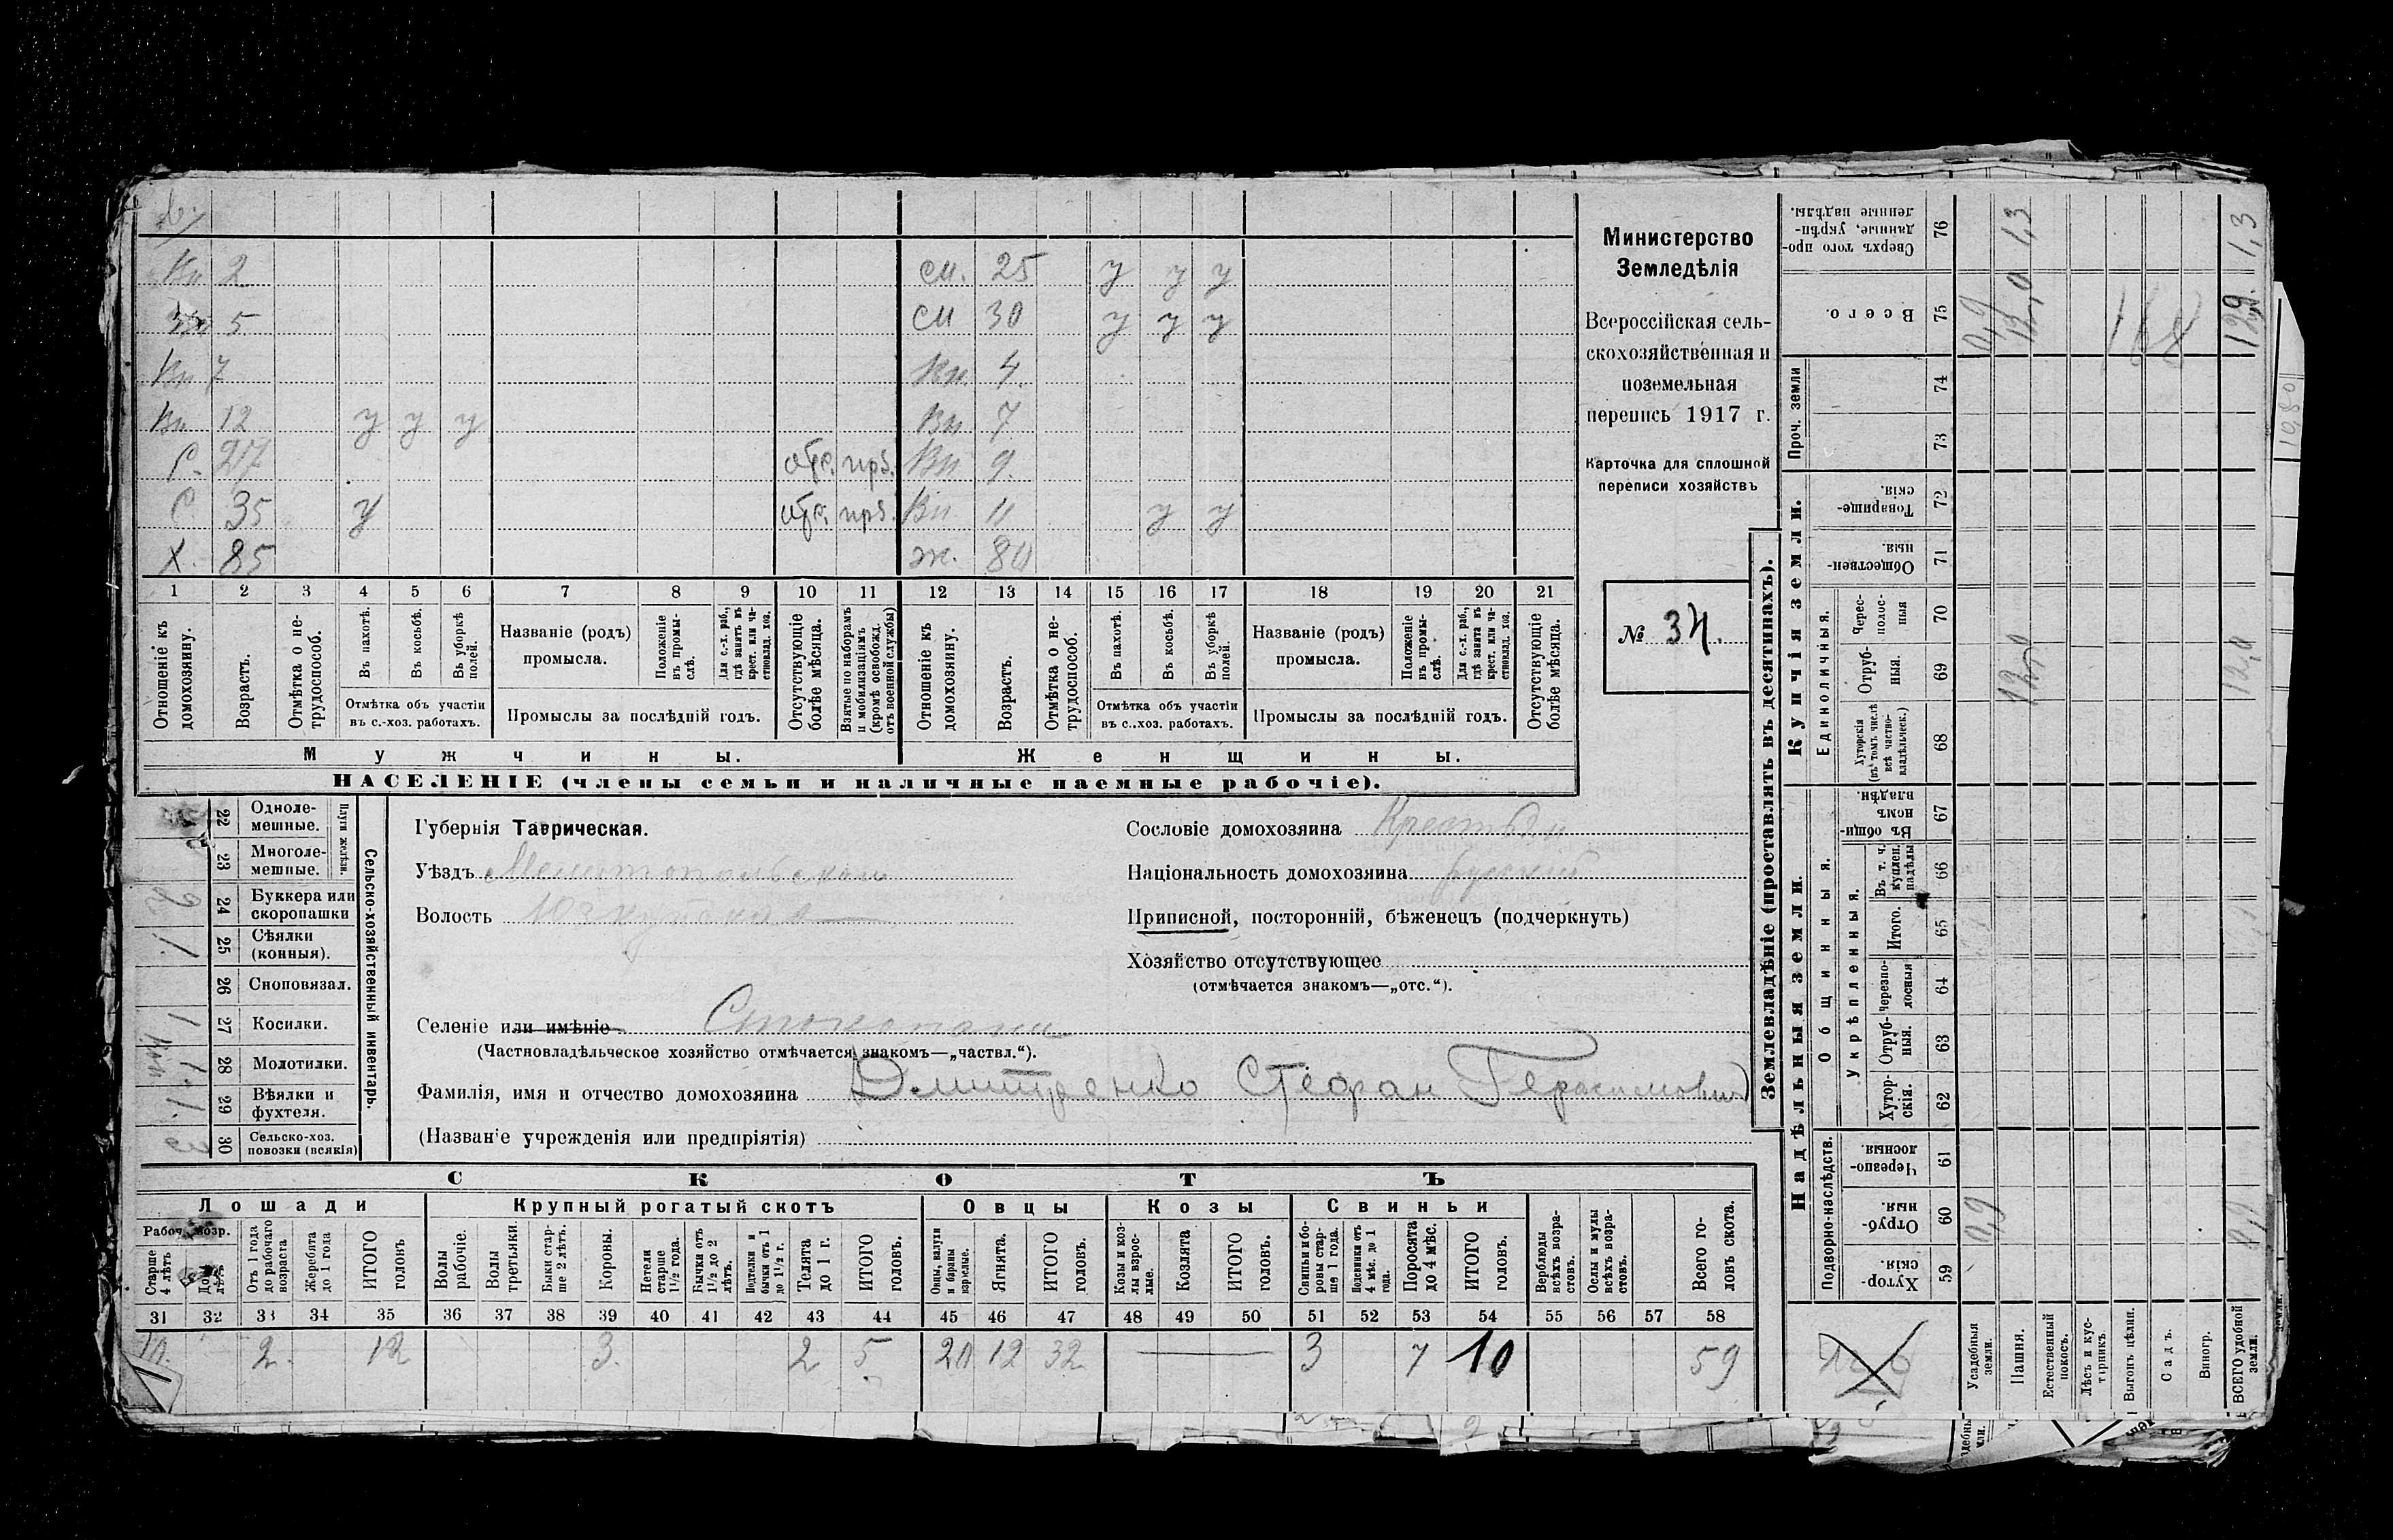 Кн 2 см. 25 у у у
5 см 30 у у у
Кн 7 Вн. 4.
Вн 12 у у у Вн 7
С. 27 отс. прз. Вн 9.
С 35 у отс. прз. Вн 11 у у
Х. 85 ж. 80
1 2 3 4 5 6 7 8 9 10 11 12 13 14 15 16 17 18 19 20 21
Отношеніе къ домохозяину.
Возрастъ.
Отмѣтка о не-трудоспособ.
Въ пахотѣ.
Въ косьбѣ.
Въ уборкѣ полей.
Отмѣтка объ участіи въ с.-хоз. работахъ.
Названіе (родъ) промысла.
Положеніе въ промы-слѣ.
Для с.-х. раб., гдѣ занятъ въ крест. или ча-стновлад. хоз.
Промыслы за послѣдній годъ.
Отсутствующіе болѣе мѣсяца.
Взятые по наборамъ и мобилизаціямъ (кромѣ освобожд. отъ военной службы)
Отношеніе къ домохозяину.
Возрастъ.
Отмѣтка о не-трудоспособ.
Въ пахотѣ.
Въ косьбѣ.
Въ уборкѣ полей.
Отмѣтка объ участіи въ с..хоз. работахъ.
Названіе (родъ) промысла.
Положеніе въ промы-слѣ.
Для с.-х. раб., гдѣ занята въ крест. или ча-стновлад. хоз.
Промыслы за послѣдній годъ.
Отсутствующіе болѣе мѣсяца.
Мужчины. Женщины.
НАСЕЛЕНІЕ (члены семьи и наличные наемные рабочіе).
Министерство
Земледѣлія
Всероссійская сель-
скохозяйственная и
поземельная
перепись 1917 г.
Карточка для сплошной
переписи хозяйствъ
№ 34.
Сельско-хозяйственный инвентарь.
Плуги желѣзн.
22 Одноле-мешные.
23 Многоле-мешные.
24 Буккера или скоропашки 2
25 Сѣялки (конныя). 1.
26 Сноповязал.
27 Косилки. 1
28 Молотилки. 1.
29 Вѣялки и фухтеля. 1.
30 Сельско-хоз. повозки (всякія) 3
Губернія Таврическая.
Уѣздъ Мелитопольскій
Волость
Селеніе или имѣніе
(Частновладѣльческое хозяйство отмѣчается знакомъ—„частвл.“).
Фамилія, имя и отчество домохозяина Дмитренко Стефан Герасимович
(Названіе учрежденія или предпріятія)
Сословіе домохозяина Крестьян
Національность домохозяина русскій
Приписной, посторонній, бѣженецъ (подчеркнуть)
Хозяйство отсутствующее
(отмѣчается знакомъ—„отс.“).
СКОТЪ
Лошади Крупный рогатый скотъ Овцы Козы Свиньи
Рабоч. возр.
Старше 4 лѣтъ
До 4 лѣтъ
Отъ 1 года до рабочаго возраста
Жеребята до 1 года
ИТОГО головъ
Волы рабочіе.
Волы третьяки.
Быки стар-ше 2 лѣтъ.
Коровы.
Нетели старше 1½ года.
Бычки отъ 1½ до 2 лѣтъ.
Подтелки и бычки отъ 1 до 1½ г.
Телята до 1 г.
ИТОГО головъ.
Овцы, валухи и бараны взрослые.
Ягнята.
ИТОГО головъ.
Козы и коз-лы взрос-лые.
Козлята
ИТОГО головъ.
Свиньи и бо-ровы стар-ше 1 года.
Подсвинки отъ 4 мѣс. до 1 года.
Поросята до 4 мѣс.
ИТОГО головъ.
Верблюды всѣхъ возра-стовъ.
Ослы и мулы всѣхъ возра-стовъ.
Всего го-ловъ скота.
31 32 33 34 35 36 37 38 39 40 41 42 43 44 45 46 47 48 49 50 51 52 53 54 55 56 57 58
10. 2. 12 3. 2 5 20 12 32 3 7 10 59
Землевладѣніе (проставлять въ десятинахъ).
Купчія земли.
Надѣльныя земли.
Сверхъ того про-данные, укрѣп-ленные надѣлы. 76 1,3 1,3
Всего. 75 0,9 12,0 168 12,9
Проч. земли 74 73
Товарище-скія. 72
Обществен-ныя. 71
Единоличныя.
Черес-полос-ныя 70
Отруб-ныя. 69 12,0 12,0
Хуторскія (въ томъ числѣ всѣ частно-владѣльческ.) 68
Общинныя.
Въ общи-номъ владѣн. 67
Укрѣпленныя.
Въ т. ч. куплен. надѣлы 66
Итого. 65
Черезпо-лосныя 64
Отруб-ныя. 63
Хутор-скія. 62
Подворно-наслѣдств.
Черезпо-лосныя 61
Отруб-ныя. 60 0,9 0,9
Хутор-скія. 59
Усадебныя земли.
Пашня.
Естественный покосъ.
Лѣсъ и кус-тарникъ.
Выгонъ цѣлин.
Садъ.
Виногр.
ВСЕГО удобной земли.
10,80